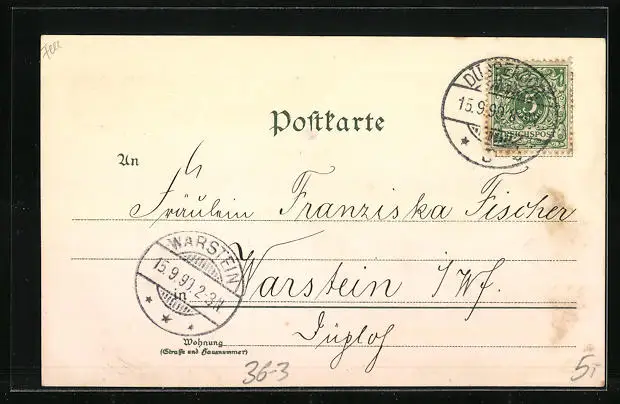 Postkarte
5
REICHSPOST
15.9.99
An
Fräulein Franziska Fischer
WARSTEIN
15.9.99.2-3N
in Warstein i/Wf.
Wohnung
(Straße und Hausnummer)
36-3
5,-